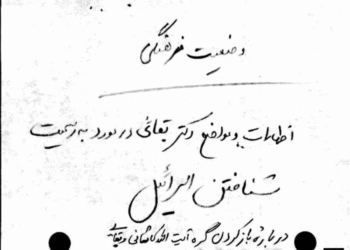 وضعیت فرهنگی
اظهارات و مواضع دکتر بقائی در مورد به رسمیت
شناختن اسرائیل
درباره باز کردن گره آیت الله کاشانی و بقایی